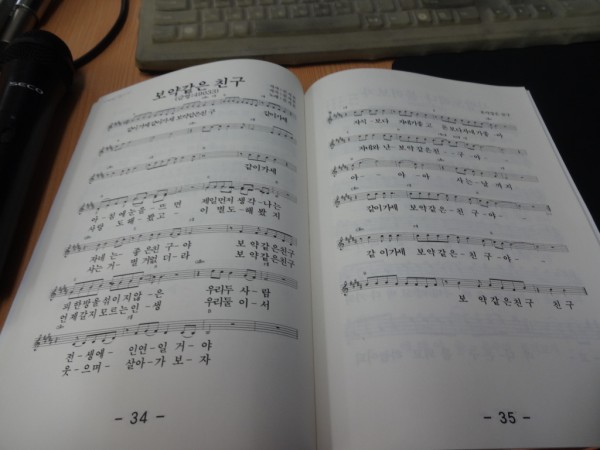 보약같은 친구
같이가세 같이가세 보약같은친구 같이가세
같이가세
아-침에눈-뜨-면 제일먼저생각-나는
사랑도해-봤고- 이별도-해봤지
자네는 좋은친구야 보약같은친구
사는거- 별거없더라 보약같은친구
피한방울섞이지않-은 우리두사람
언제갈지모르는인-생 우리둘이서
전-생에- 인연-일거야
웃-으며- 살아-가보-자
- 34 -
자식-보다 자네가좋고 돈보다자네가좋-아
자네와난-보약같은친-구-야-
아- 아-아 사는-날까지
같이가세 보약같은-친구-야-
같이가세 보약같은-친구-야-
보약같은친구 친구
- 35 -